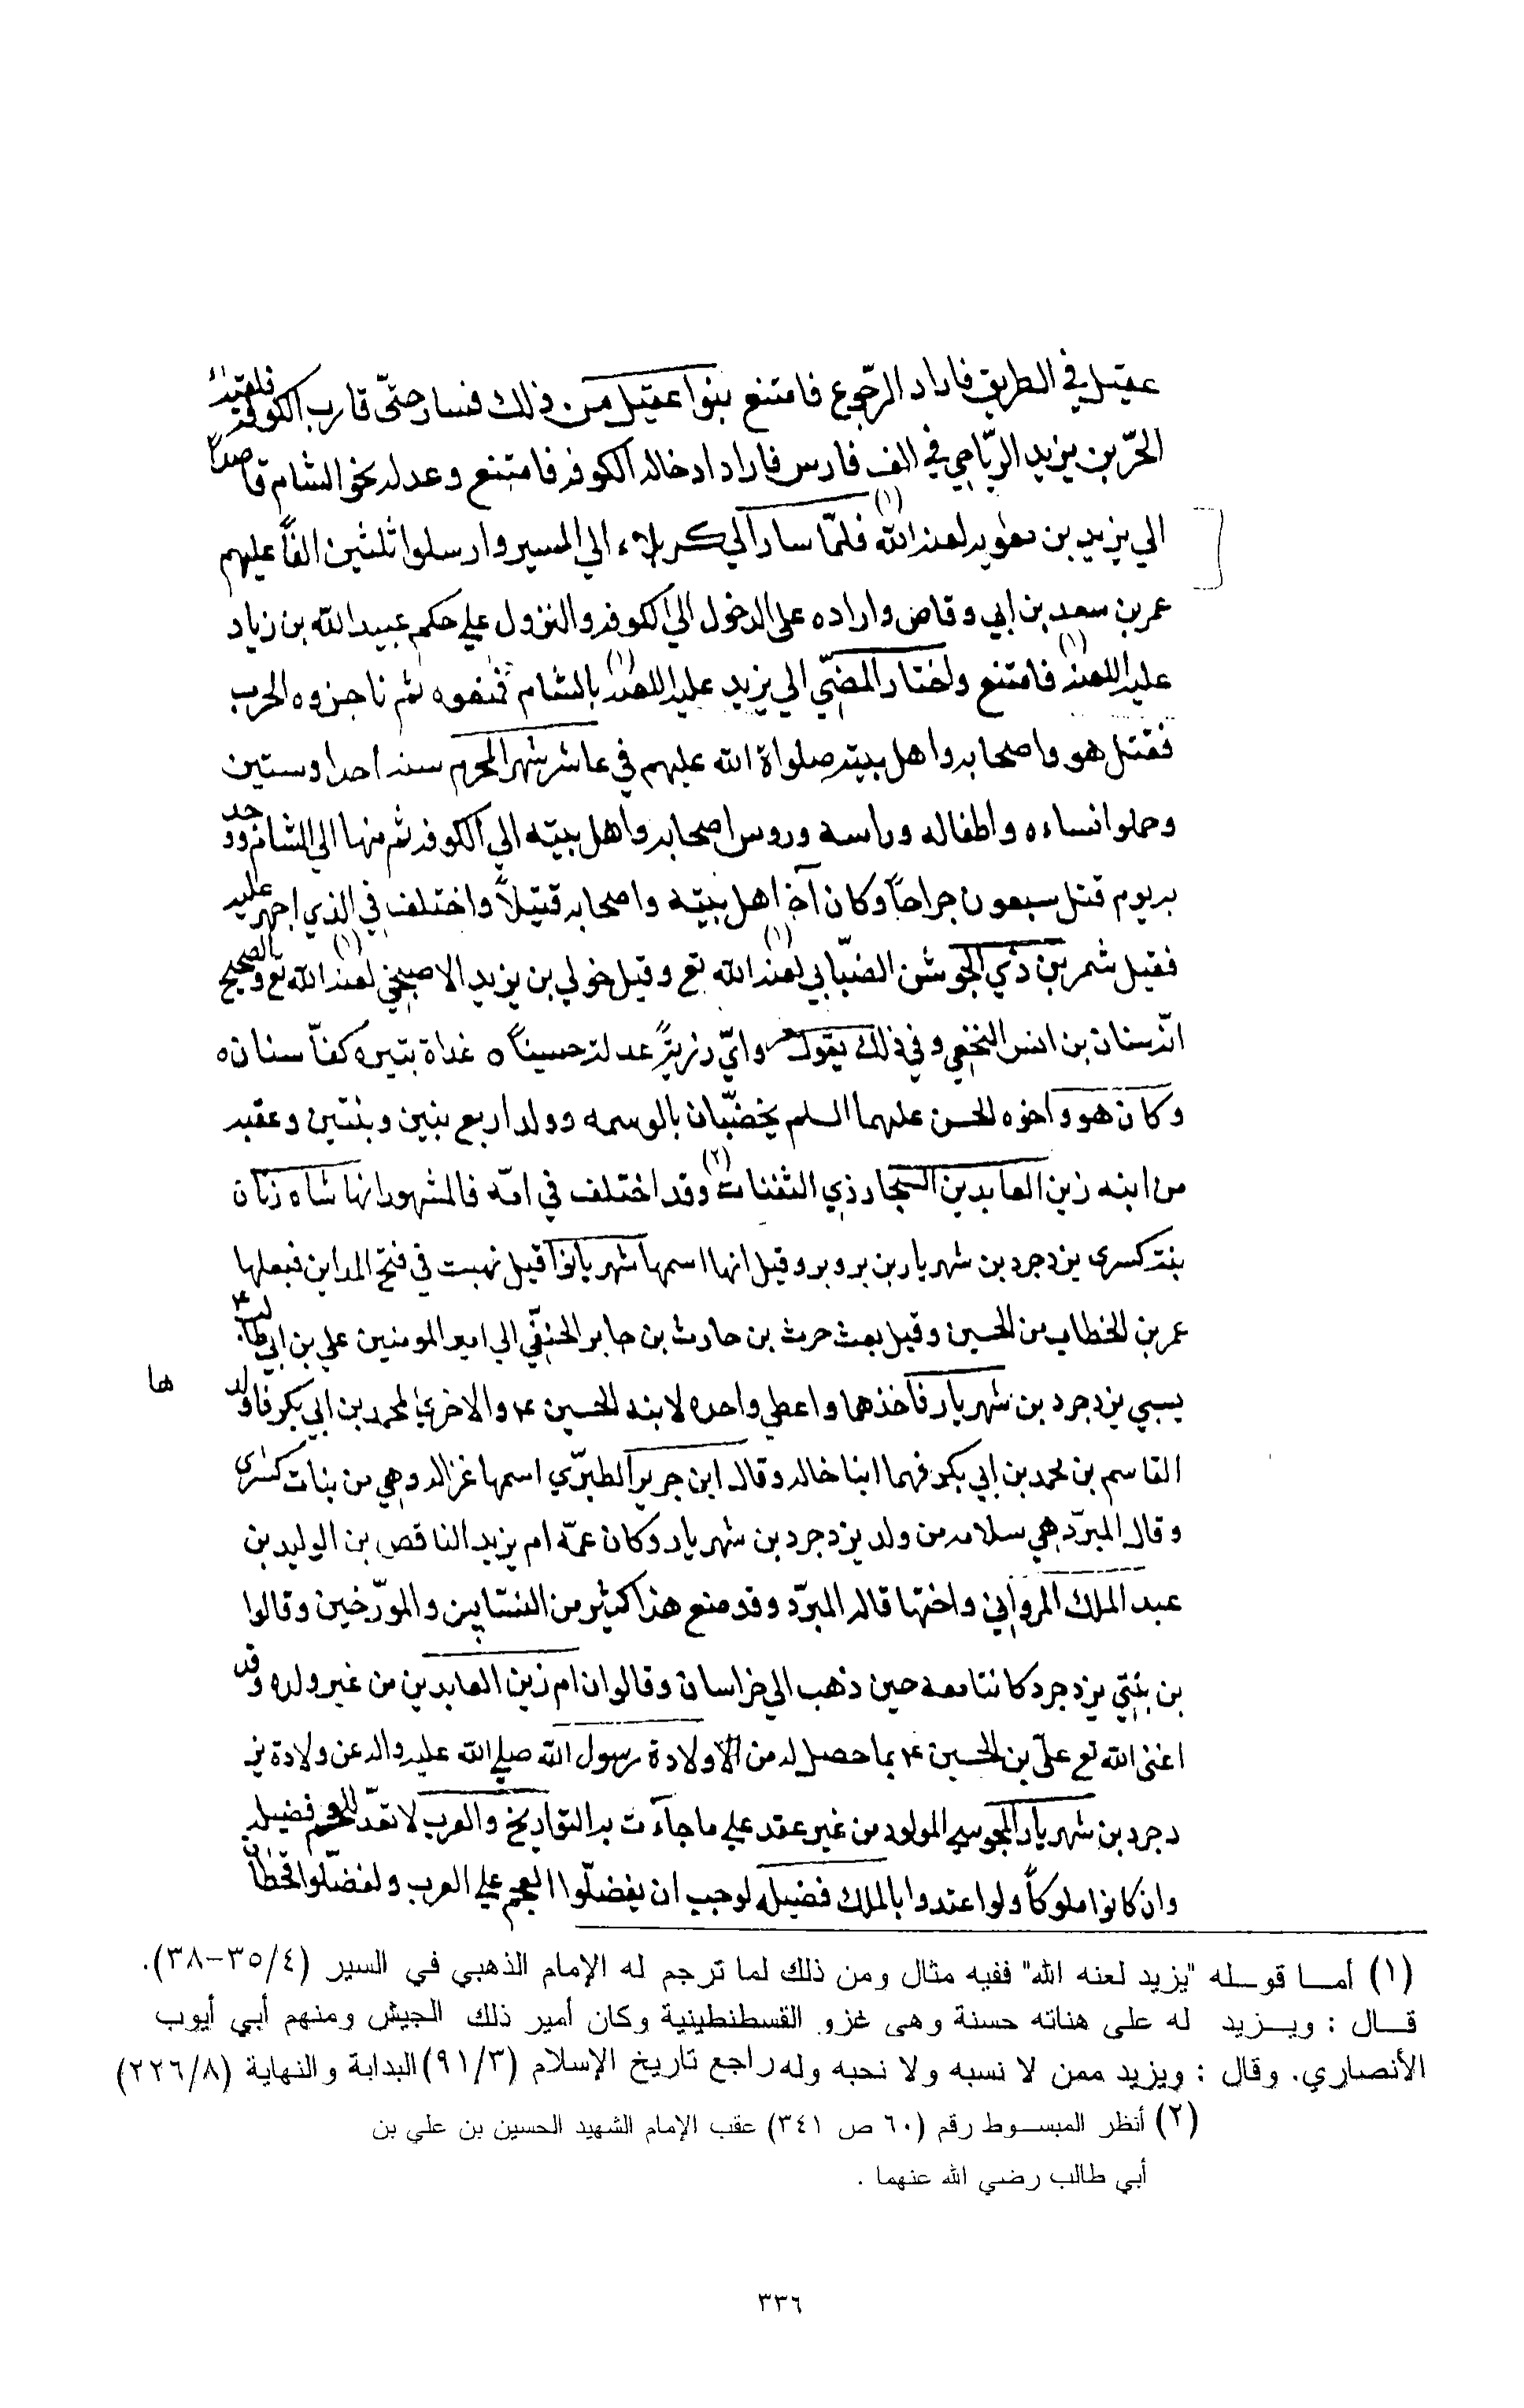 عقيل في الطريق فاراد الرّجوع فامتنع بنوا عقيل من ذلك فسار حتّى قارب الكوفه فلقيه
الحرّ بن يزيد الرّياحي في الف فارس فاراد ادخاله الكوفه فامتنع وعدله نحو الشام قاصداً
الي يزيد بن معويه لعنه الله (١) فلمّا سار الي كربلاء الي المسير وارسلوا ثلثين الفاً عليهم
عمر بن سعد بن ابي وقاص واراده على الدخول الي الكوفه والنزول علي حكم عبيد الله بن زياد
عليه اللعنه (١) فامتنع واختار المضيّ الي يزيد عليه اللعنه (١) بالشام فمنعوه ثم ناجزوه الحرب
فقتل هو واصحابه واهل بيته صلواة الله عليهم في عاشر شهر المحرم سنه احدا وستين
وحملوا نساءه واطفاله وراسه وروس اصحابه واهل بيته الي الكوفه ثم منها الي الشام ووجد
به يوم قتل سبعون جراحاً وكان آخر اهل بيته واصحابه قتيلاً واختلف في الذي اجهز عليه
فقيل شمر بن ذي الجوشن الضّبابي لعنه (١) الله تع وقيل خولي بن يزيد الاصبحي لعنه (١) الله تع والصحيح
انّه سنان بن انس النخعي وفي ذلك يقول وايّ رزيةٍ عدلت حسيناً ٥ غداة تبيره كفّا سنان ٥
وكان هو واخوه الحسن عليهما السلم يخضّبان بالوسمه وولد اربع بنين وبنتين وعقبه
من ابنه زين العابدين السجاد ذي الثفنات (٢) وقد اختلف في امّه فالمشهور انها شاه زنان
بنت كسرى يزدجرد بن شهريار بن برويز وقيل انها اسمها شهربانوا قيل نهبت في فتح المداين فبعلها
عمر بن الخطاب من الحسين وقيل بعث حريث بن حادث بن جابر الحنفي الي امير المومنين علي بن ابي طالب ع
ها
يبنتي يزدجرد بن شهريار فاخذهما واعطي واحده لابنه الحسين ع والاخري لمحمد بن ابي بكر فاولد
القاسم بن محمد بن ابي بكر فهما ابنا خاله وقال ابن جرير الطبرّي اسمها غزاله وهي من بنات كسرى
وقال المبرّد هي سلامه من ولد يزدجرد بن شهريار وكان عمّه ام يزيد الناقص بن الوليد بن
عبد الملك المرواني واختها قاله المبرّد وقد منع هذا كثير من النسّابين والمورّخين وقالوا
بن بنتي يزدجرد كانتا معه حين ذهب الي خراسان وقالوا ان ام زين العابدين من غير ولده وقد
اغنى الله تع عليّ بن الحسين ع بما حصل له من الاولادة رسول الله صلي الله عليه واله عن ولادة يز
دجرد بن شهريار المجوسي المولود من غير عقد علي ما جآءت به التواريخ والعرب لا تعدّ للعجم فضيله
وان كانوا ملوكاً ولو اعتدوا بالملك فضيله لوجب ان يفضلّوا العجم علي العرب ولفضّلوا قحطان
(١) أمـا قوـله "يزيد لعنه الله" ففيه مثال ومن ذلك لما ترجم له الإمام الذهبي في السير (٣٥/٤-٣٨).
قـال : ويـزيد له على هناته حسنة وهى غزو القسطنطينية وكان أمير ذلك الجيش ومنهم أبي أيوب
الأنصاري. وقال : ويزيد ممن لا نسبه ولا نحبه وله راجع تاريخ الإسلام (٩١/٣) البداية والنهاية (٢٢٦/٨)
(٢) أنظر المبسـوط رقم (٦٠ ص ٣٤١) عقب الإمام الشهيد الحسين بن علي بن
أبي طالب رضي الله عنهما .
٣٣٦